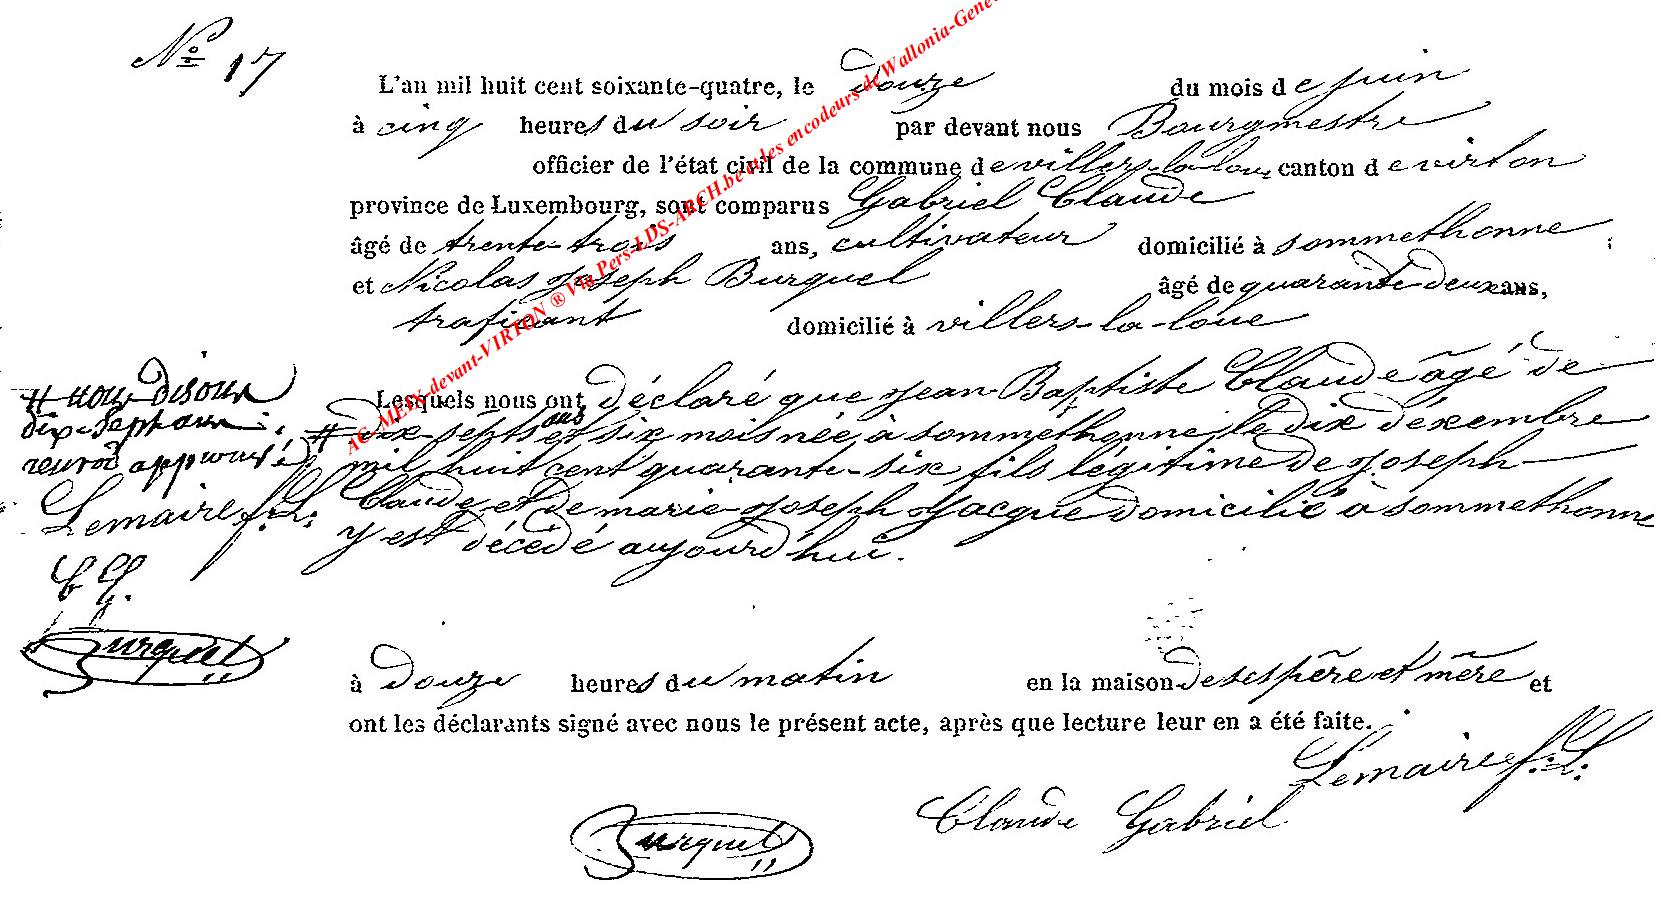 N° 17
L'an mil huit cent soixante-quatre, le douze du mois de juin
à cinq heures du soir par devant nous Bourgmestre
officier de l'état civil de la commune de villers-la-loue canton de virton
province de Luxembourg, sont comparus Gabriel Claude
âgé de trente-trois ans, cultivateur domicilié à sommethonne ;
et Nicolas Joseph Burquel âgé de quarante deux ans,
traficant domicilié à villers-la-loue
Lesquels nous ont déclaré que Jean Baptiste Claude âgé de
# dix septs ans et six mois née à sommethonne le dix déxembre
mil huit cent quarante-six fils légitime de Joseph
Claude et de marie Joseph Jacque domicilié à sommethonne
y est décédé aujourd'hui.
# nous disons
dix-sept ans
renvoi approuvé
Lemaire f.L:
C G.
Burquel
à douze heures du matin en la maison de ses père et mère et
ont les déclarants signé avec nous le présent acte, après que lecture leur en a été faite.
Lemaire f:L:
Claude Gabriel
Burquel
AC-MEIX-devant-VIRTON ® Via Pers-LDS-ARCH.be et les encodeurs de Wallonia-Gene